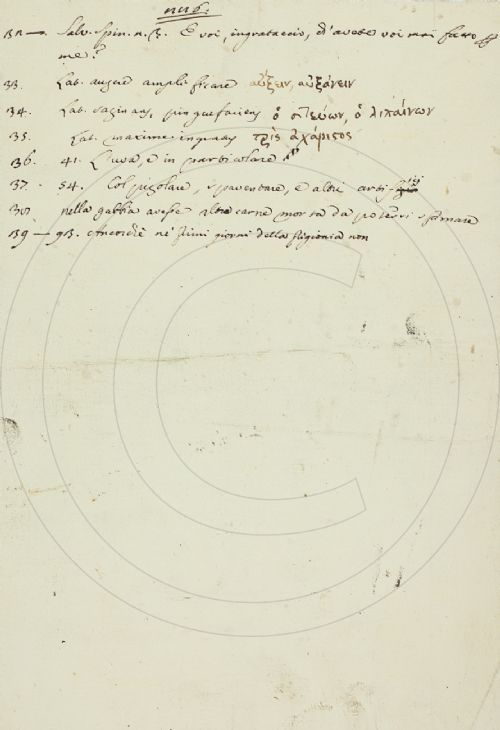 Salv. Spin. n. 3. E voi, ingrataccio, ch'avete voi mai fatto
me?
33. Lat. augere amplificare αὔξειν, αὐξάνειν
34. Lat. saginans, pinguefaciens ὁ σιτεύων, ὁ λιπαίνων
35. Lat. maxime ingratus τρὶς ἀχάριστος
36. 41. L'uva, e in particolare
37. 54. Col pigolare, spaventare, e altri
nella gabbia avesse altra carne morta da potersi sfamare
39 — 93. Ancorchè ne' primi giorni della stagione non